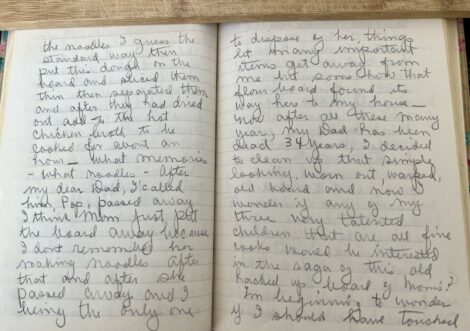 the noodles I guess the
standard way then
put the dough on the
board and sliced them
thin then seperated them
and after they had dried
out add to the hot
chicken broth to be
cooked for about an
hour - what memories
- what noodles - After
my dear Dad, I called
him Pop, passed away
I think Mom just put
the board away because
I dont remember her
making noodles after
that and after she
passed away and I
being the only one
to dispose of her things
let many important
items get away from
me but some how that
flour board found its
way here to my house -
now after all these many
year, my Dad has been
dead 34 years, I decided
to clean up that simple
looking, worn out, warped,
old board and now I
wonder if any of my
three very talented
children that are all fine
cooks would be interested
in the saga of this old
hacked up board of Moms?
I'm beginning to wonder
if I should have touched